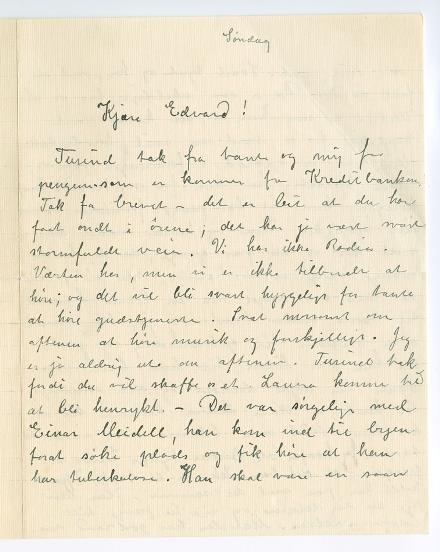 Søndag
Kjære Edvard!
Tusind tak fra tante og mig for
pengene som er kommet fra Kreditbanken.
Tak for brevet – det er leit at du har
faat ondt i ørene; det har jo vært svært
stormfuldt veir. Vi har ikke Radio.
Værten har, men vi er ikke tilbudt at
høre; og det vil bli svært hyggeligt for tante
at høre gudstjeneste. Svært morsomt om
aftenen at høre musik og forskjelligt. Jeg
er jo aldrig ute om aftenen. Tusind tak
fordi du vil skaffe os et. Laura kommer til
at bli henrykt. – Det var sørgelig med
Einar Meidell, han kom ind til byen
forat søke plads og fik høre at han
har tuberkulose. Han skal være en saan